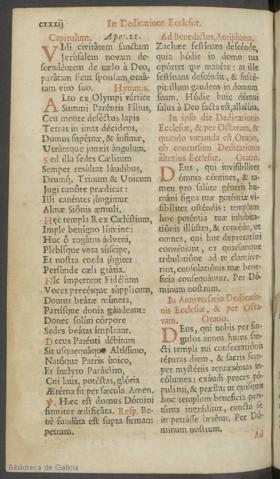 cxxxij
In Dedicatione Ecclesiæ.
Capitulum. Apoc. 21.
VIdi civitátem sanctam
Jerusalem novam de-
scendéntem de cælo à Deo,
parátam sicut sponsam, orná-
tam viro suo. Hymnus.
ALto ex Olympi vértice
Summi Paréntis Filius,
Ceu monte deséctus lapis
Terras in imas décidens,
Domus supérnæ, & ínfimæ,
Utrúmque junxit ángulum.
Sed illa sedes Cælitum
Semper resúltat láudibus,
Deúmq; Trinum & Unicum
Jugi canóre prædicat:
Illi canéntes júngimur
Almæ Siónis æmuli.
Hæc templa Rex Cæléstium,
Imple benígno lúmine:
Huc ô rogánus ádveni,
Plebísque vota súscipe,
Et nostra corda júgiter
Perfúnde cæli grátia.
Hic ímpetrent Fidélium
Voces precésque súpplicum,
Domus beátæ múnera,
Partísque donis gáudeant:
Donec solúti córpore
Sedes beátas ímpleant.
Decus Parénti débitum
Sit usquequáque Altíssimo,
Natóque Patris único,
Et ínclyto Paráclito,
Cui laus, potéstas, glória
Ætérna sit per sæcula. Amen.
℣. Hæc est domus Dómini
fírmiter ædificáta. Resp. Be-
nè fundáta est supra firmam
petram.
Ad Benedictus, Antiphona.
Zachæe festínans descénde,
quia hódie in domo tua
opórtet me manére: at ille
festínans descéndit, & suscé-
pit illum gaudens in domum
suam. Hódie huic dómui
salus à Deo facta est, allelúia.
In ipso die Dedicationis
Ecclesiæ, & per Octavam, &
quando varianda est Oratio,
ob concursum Dedicationis
alterius Ecclesiæ. Oratio.
DEus, qui invisibíliter
ómnia cóntines, & ta-
men pro salúte géneris hu-
máni signa tuæ poténtiæ vi-
sibíliter osténdis: templum
hoc poténtia tuæ inhabita-
tiónis illústra, & concéde, ut
omnes, qui huc deprecatúri
convéniunt, ex quacúmque
tribulatióne ad te clamáve-
rint, consolatiónis tuæ bene-
fícia consequántur. Per Dó-
minum nostrum.
In Anniversario Dedicatio-
nis Ecclesiæ, & per Octa-
vam. Oratio.
DEus, qui nobis per sín-
gulos annos hujus san-
cti templi tui consecratiónis
réparas diem, & sacris sem-
per mystériis repræséntas in-
cólumes: exáudi preces pó-
puli tui, & præsta; ut quisquis
hoc templum benefícia peti-
túrus ingréditur, cuncta se
impetrásse lætétur. Per Dó-
minum nostrum.
Ad
Biblioteca de Galicia